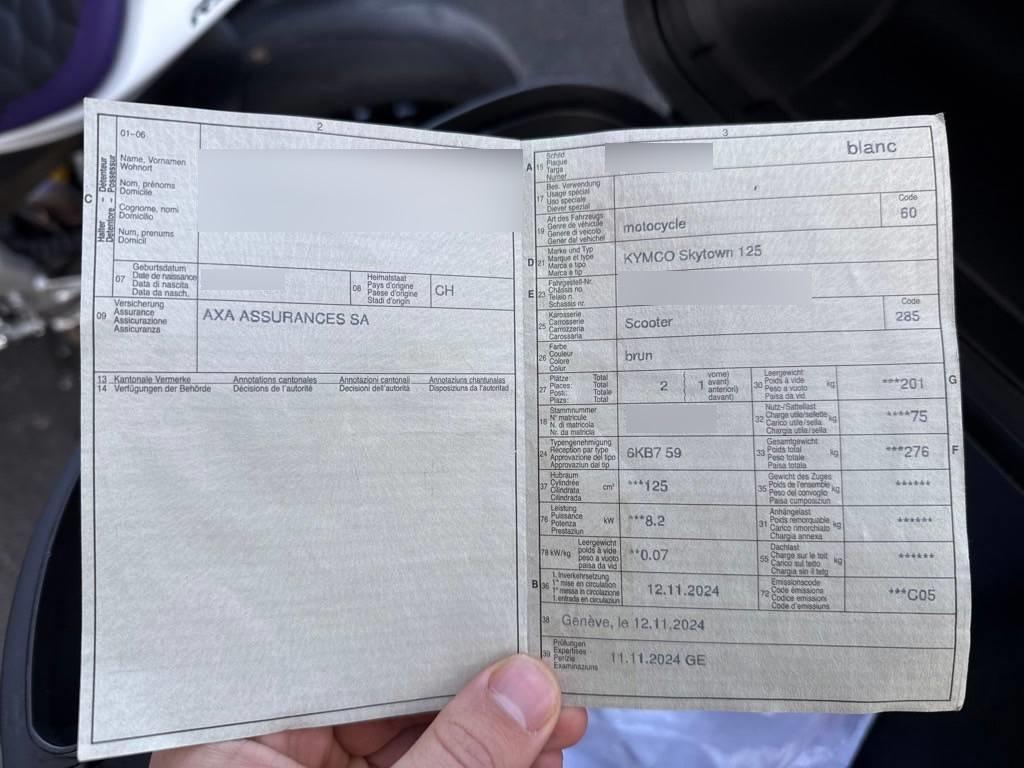 2
01-06
C
Halter - Détenteur
Detentore - Possessur
Name, Vornamen
Wohnort
Nom, prénoms
Domicile
Cognome, nomi
Domicilio
Num, prenums
Domicil
07
Geburtsdatum
Date de naissance
Data di nascita
Data da nasch.
08
Heimatstaat
Pays d'origine
Paese d'origine
Stadi d'origin
CH
09
Versicherung
Assurance
Assicurazione
Assicuranza
AXA ASSURANCES SA
13 Kantonale Vermerke Annotations cantonales Annotazioni cantonali Annotaziuns chantunalas
14 Verfügungen der Behörde Décisions de l'autorité Decisioni dell'autorità Disposiziuns da l'autoritad
3
A 15
Schild
Plaque
Targa
Numer
blanc
17
Bes. Verwendung
Usage spécial
Uso speciale
Diever spezial
19
Art des Fahrzeugs
Genre de véhicule
Genere di veicolo
Gener dal vehichel
motocycle
Code
60
D 21
Marke und Typ
Marque et type
Marca e tipo
Marca e tip
KYMCO Skytown 125
E 23
Fahrgestell-Nr.
Châssis no.
Telaio n.
Schassis nr.
25
Karosserie
Carrosserie
Carrozzeria
Carossaria
Scooter
Code
285
26
Farbe
Couleur
Colore
Colur
brun
27
Plätze: Total
Places: Total
Posti: Totale
Plazs: Total
2 ( 1
vorne)
avant)
anteriori)
davant)
30
Leergewicht
Poids à vide
Peso a vuoto
Paisa da vid
kg
***201
G
18
Stammnummer
N° matricule
N. di matricola
Nr. da matricla
32
Nutz-/Sattellast
Charge utile/sellette
Carico utile/sella
Chargia utila/sella
kg
****75
24
Typengenehmigung
Réception par type
Approvazione del tipo
Approvaziun dal tip
6KB7 59
33
Gesamtgewicht
Poids total
Peso totale
Paisa totala
kg
***276
F
37
Hubraum
Cylindrée
Cilindrata
Cilindrada
cm³
***125
35
Gewicht des Zuges
Poids de l'ensemble
Peso del convoglio
Paisa cumposiziun
kg
******
76
Leistung
Puissance
Potenza
Prestaziun
kW
***8.2
31
Anhängelast
Poids remorquable
Carico rimorchiato
Chargia annexa
kg
******
78 kW/kg
Leergewicht
poids à vide
peso a vuoto
paisa da vid
**0.07
55
Dachlast
Charge sur le toit
Carico sul tetto
Chargia sin il tetg
kg
******
B 36
1. Inverkehrsetzung
1re mise en circulation
1a messa in circolazione
1. entrada en circulaziun
12.11.2024
72
Emissionscode
Code émissions
Codice emissioni
Code d'emissiuns
***C05
38
Genève, le 12.11.2024
39
Prüfungen
Expertises
Perizie
Examinaziuns
11.11.2024 GE